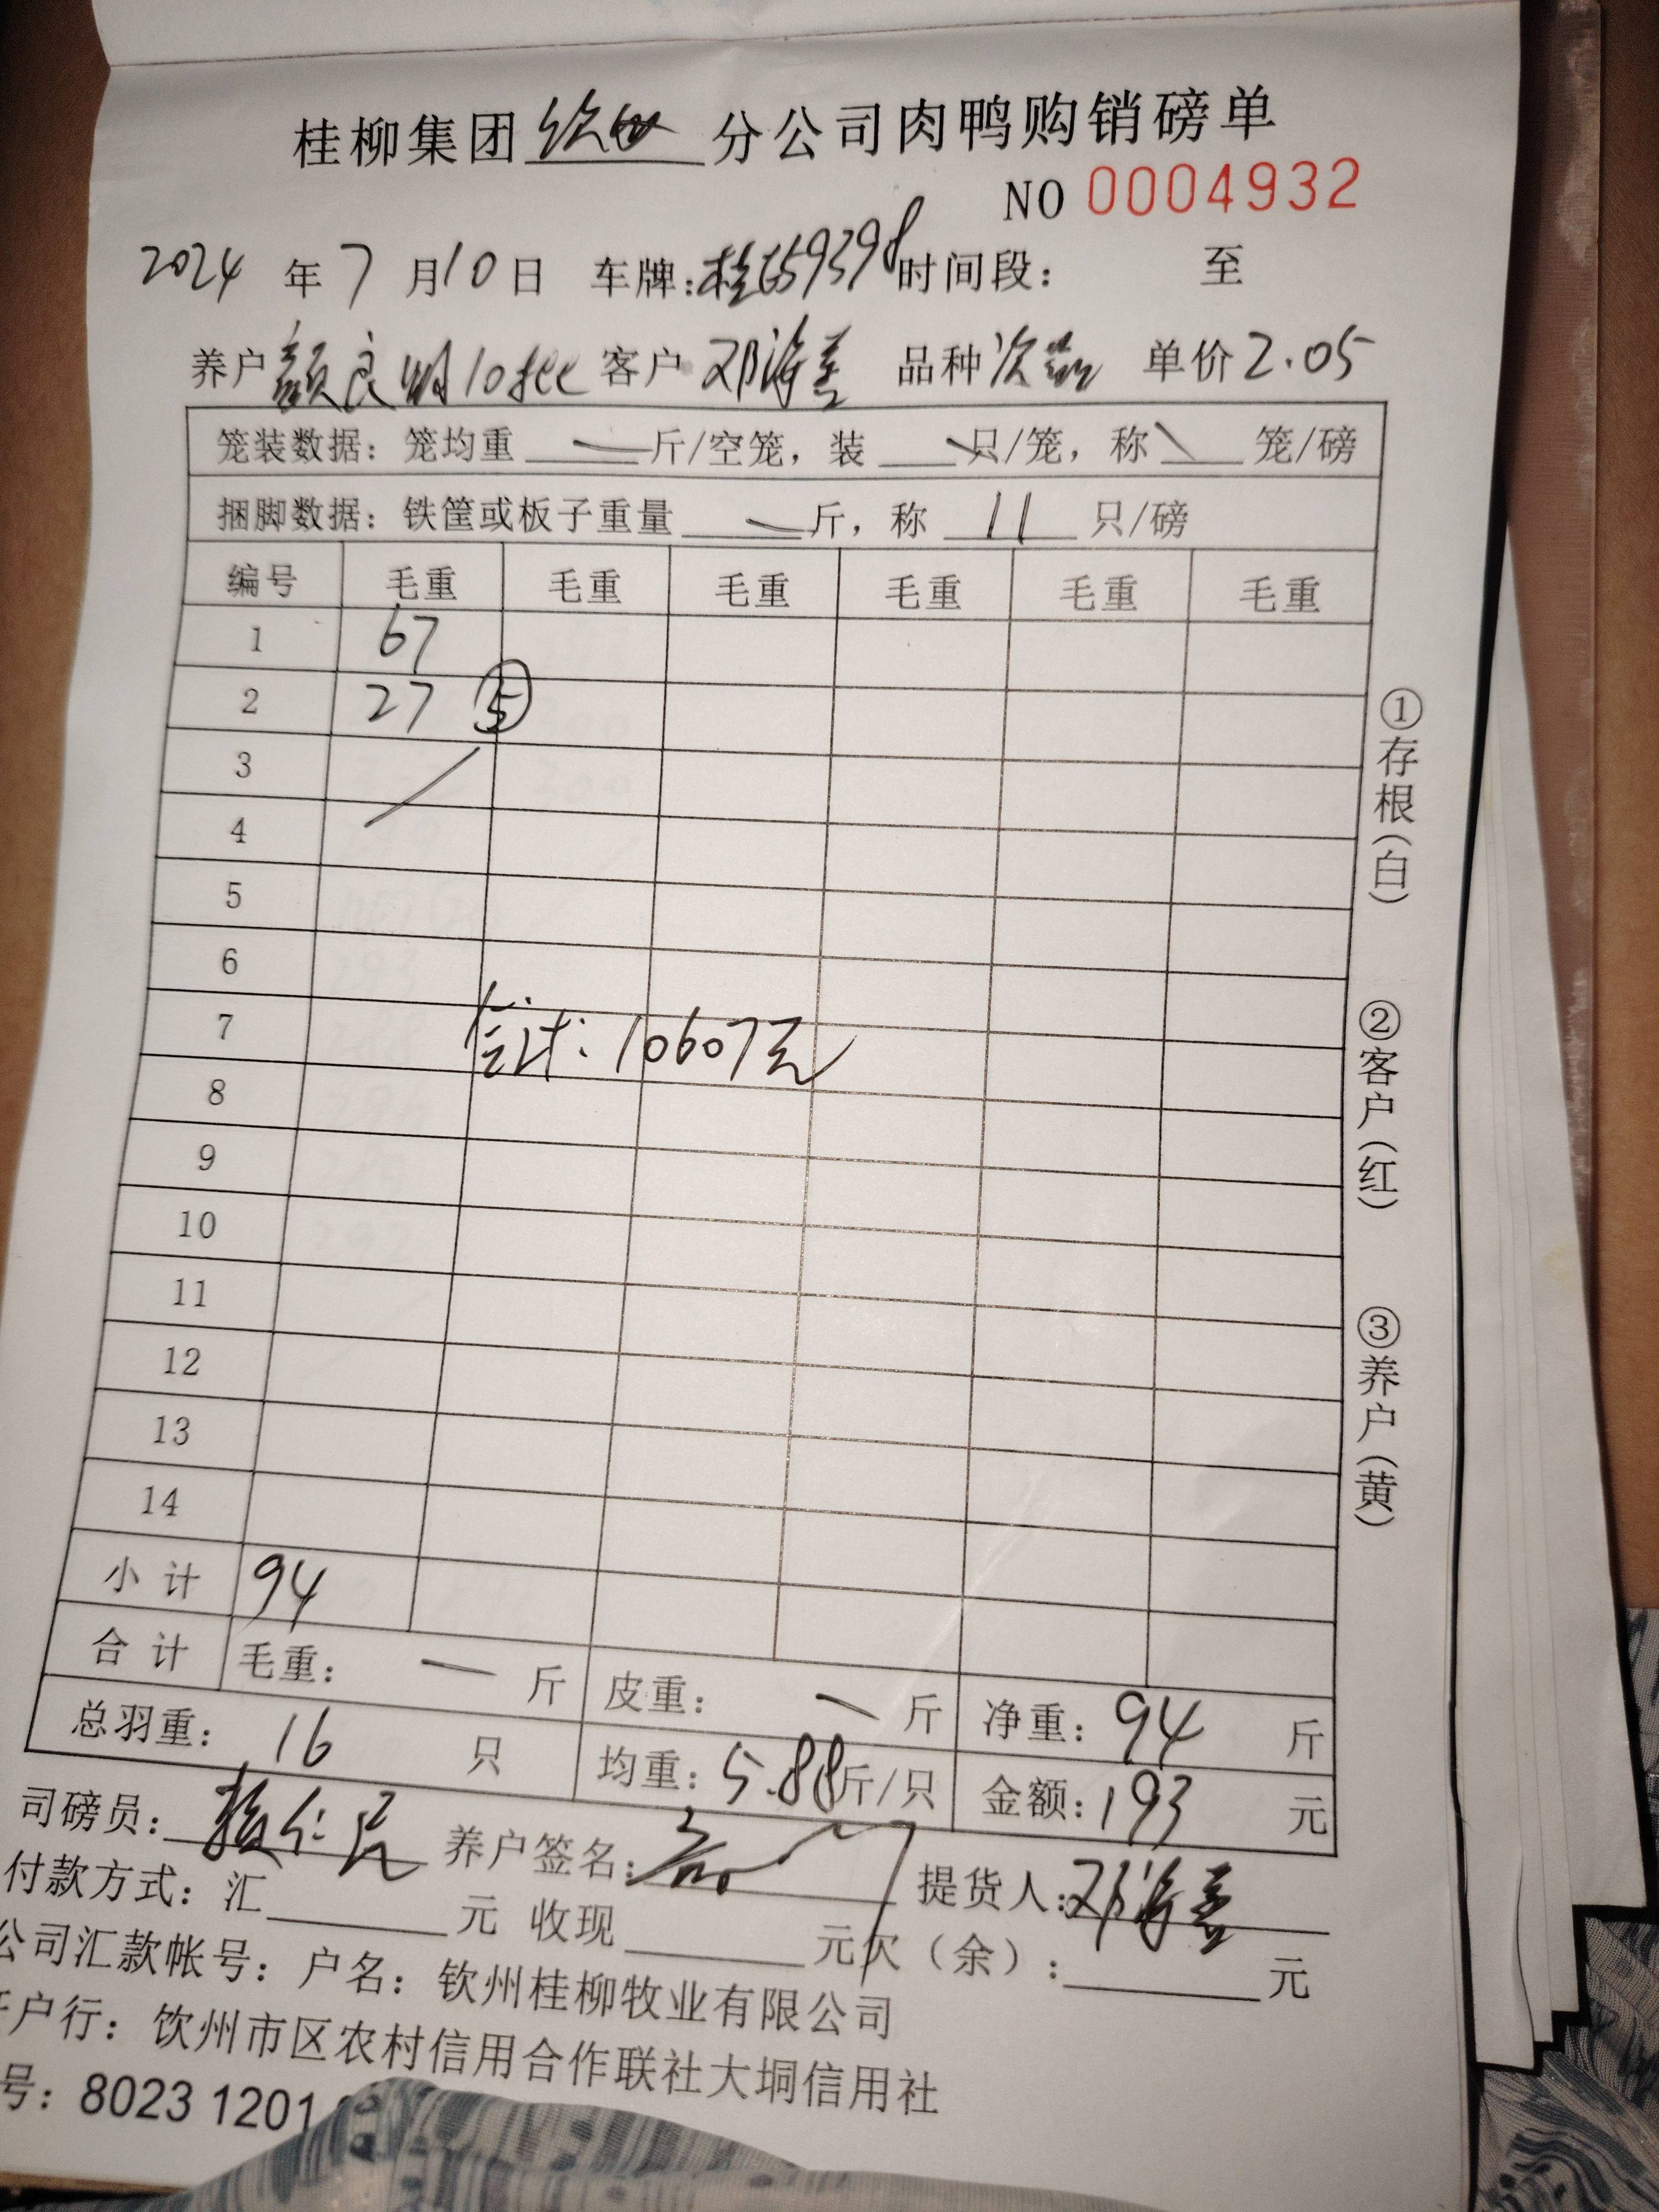 桂柳集团 钦州 分公司肉鸭购销磅单
NO 0004932
2024 年 7 月 10 日 车牌: 时间段: 至
养户 颜良明 客户 邓海善 品种 次品 单价 2.05
笼装数据: 笼均重 — 斤/空笼, 装 — 只/笼, 称 — 笼/磅
捆脚数据: 铁筐或板子重量 — 斤, 称 11 只/磅
编号 毛重 毛重 毛重 毛重 毛重 毛重
1 67
2 27 ⑤
3
4
5
6
7 合计: 10607元
8
9
10
11
12
13
14
小计 94
合计 毛重: — 斤 皮重: — 斤 净重: 94 斤
总羽重: 16 只 均重: 5.88 斤/只 金额: 193 元
①存根(白)
②客户(红)
③养户(黄)
司磅员: 养户签名: 提货人: 邓海善
付款方式: 汇 元 收现 元 欠(余): 元
公司汇款帐号: 户名: 钦州桂柳牧业有限公司
户行: 钦州市区农村信用合作联社大垌信用社
号: 8023 1201